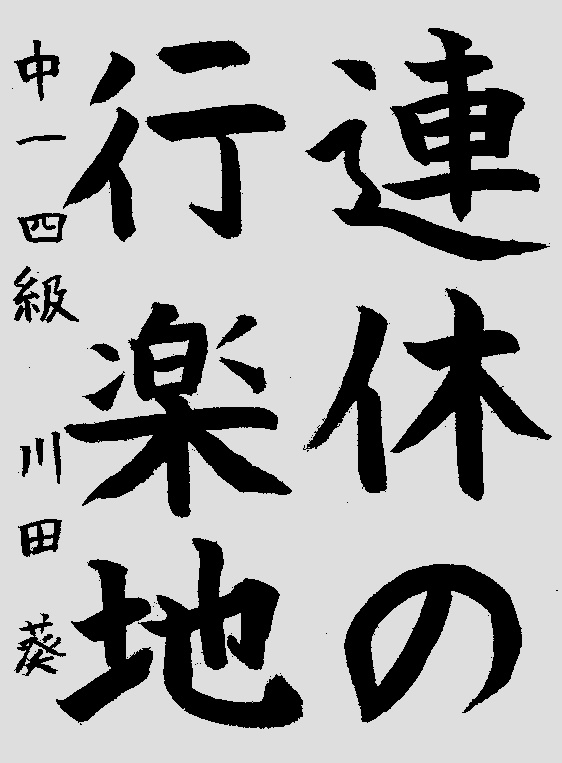 連休の
行楽地
中一 四級 川田 葵